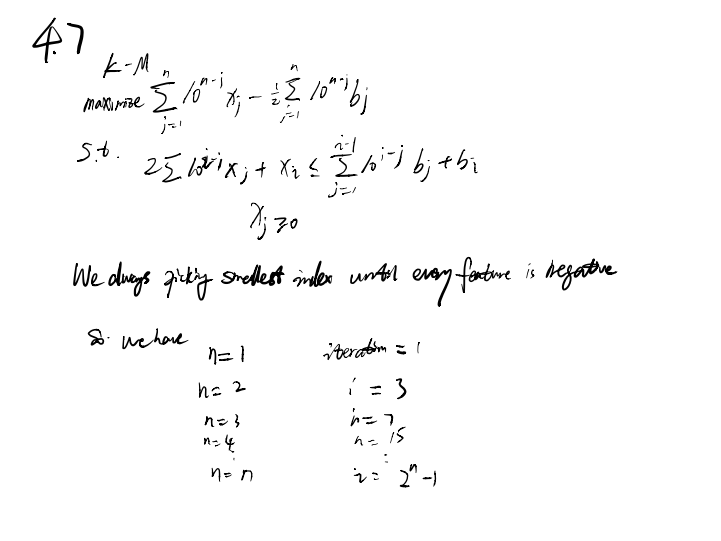 4.7
K-M
maximize n∑j=1 10^{n-j} x_j - 1/2 n∑j=1 10^{n-j} b_j
S.t. 2∑ 10^{i-j} x_j + x_i ≤ i-1∑j=1 10^{i-j} b_j + b_i
x_j ≥ 0
We always picking smallest index until every feature is negative
So we have
n=1 iteration = 1
n=2 i = 3
n=3 n=7
n=4 n=15
⋮ ⋮
n=n i= 2^n-1